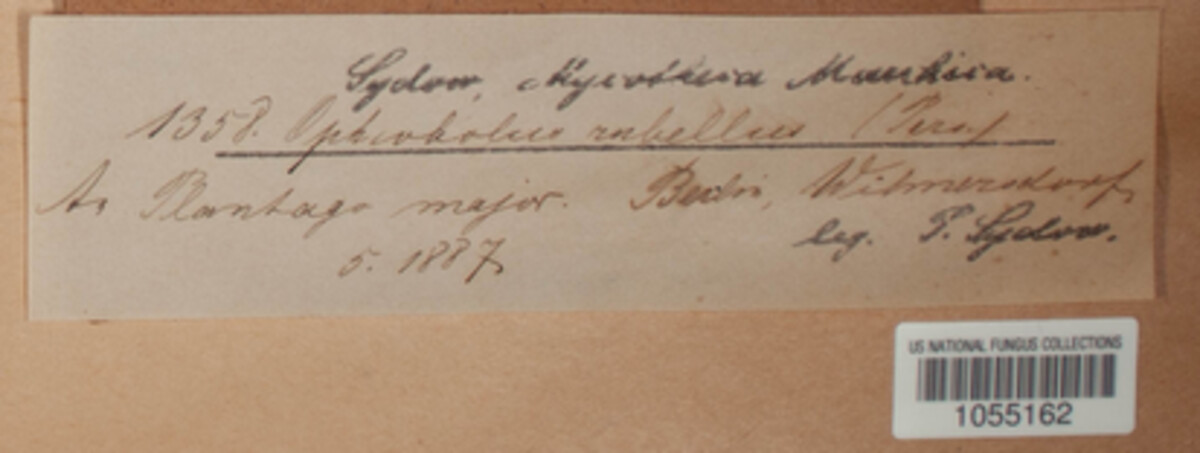 Sydow, Mycotheca Marchica.
1358. Ophiobolus rubellus (Pers.)
An Plantago major. Berlin, Wilmersdorf
leg. P. Sydow.
5. 1887
US NATIONAL FUNGUS COLLECTIONS
1055162